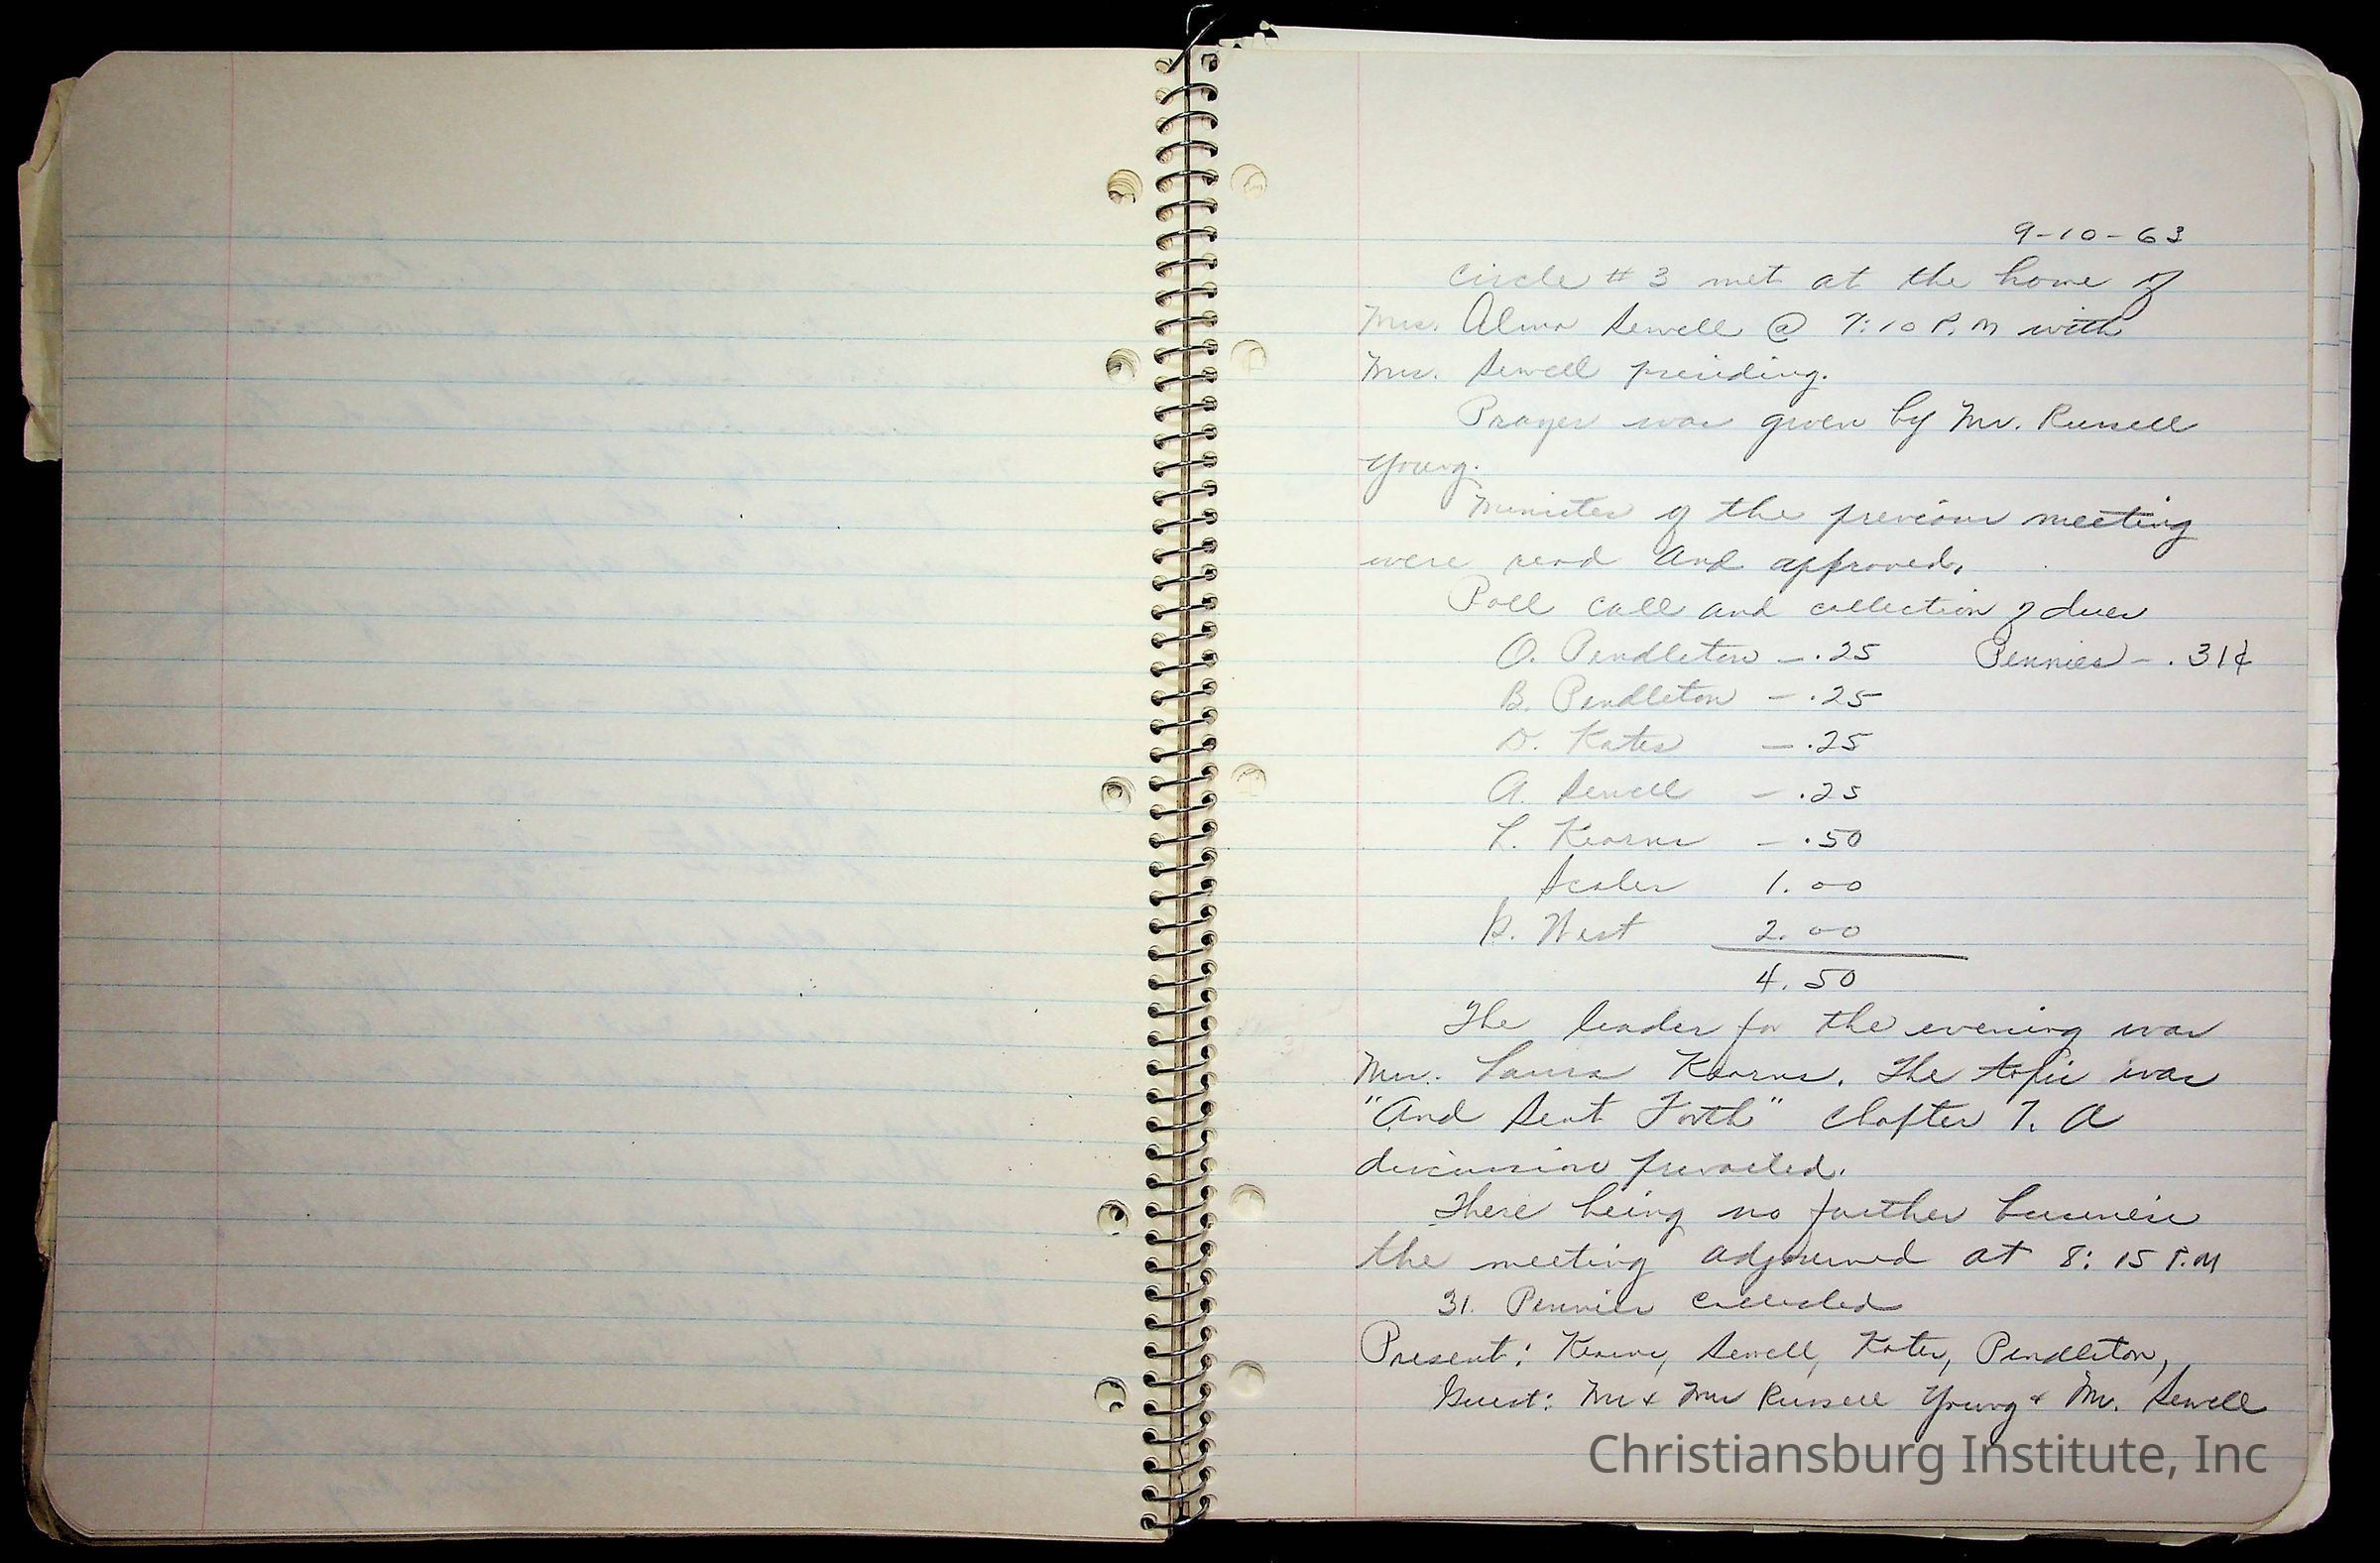 9-10-63
Circle # 3 met at the home of
Mrs. Alma Sewell @ 7:10 P.M with
Mrs. Sewell presiding.
Prayer was given by Mr. Russell
Young.
Minutes of the previous meeting
were read and approved.
Roll call and collection of dues
O. Pendleton - .25 Pennies - .31¢
B. Pendleton - .25
D. Kates - .25
A. Sewell - .25
L. Kearns - .50
Scales 1.00
R. West 2.00
4.50
The leader for the evening was
Mrs. Laura Kearns. The topic was
"And Sent Forth" Chapter 7. A
discussion prevailed.
There being no further business
the meeting adjourned at 8:15 P.M
31. Pennies collected
Present: Kearns, Sewell, Kates, Pendleton,
Guest: Mr & Mrs Russell Young & Mr. Sewell
Christiansburg Institute, Inc